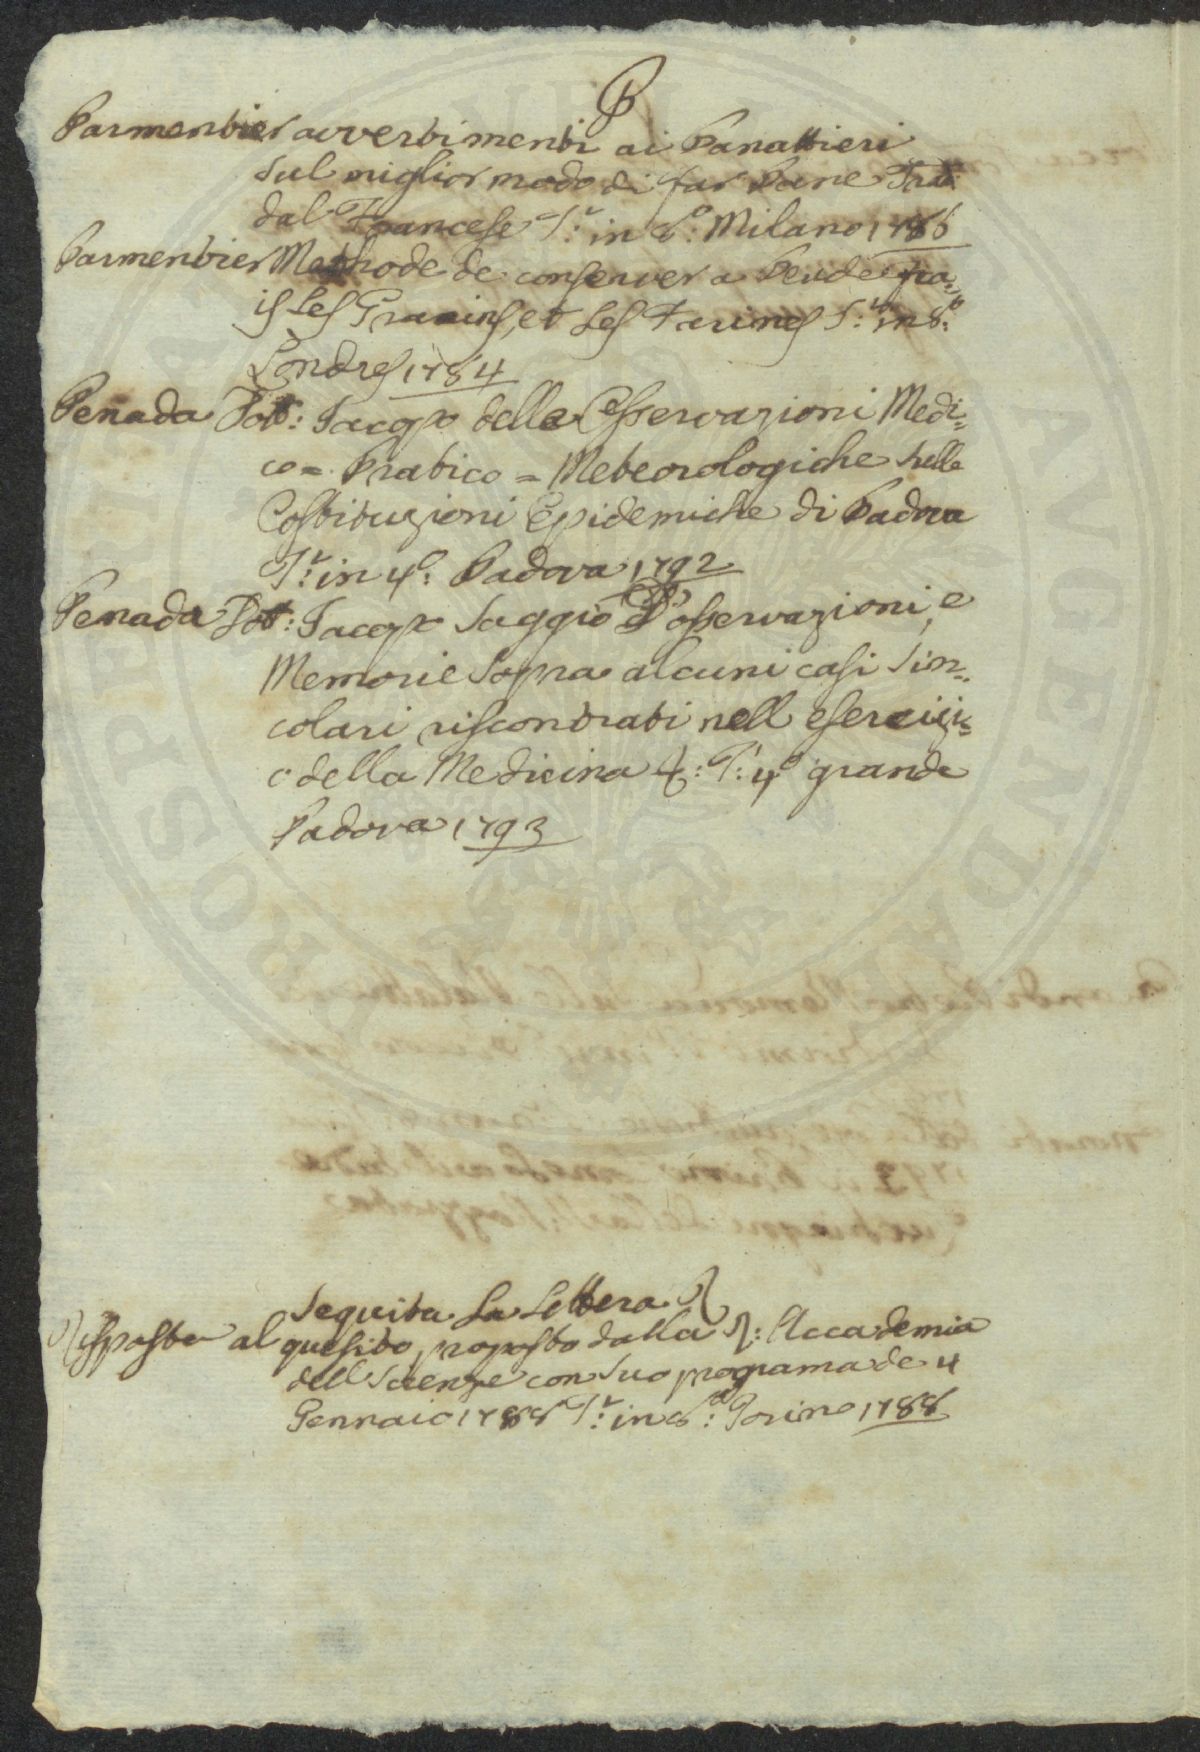 P
Parmentier avvertimenti ai Panattieri
sul miglior modo di far Pane Trad
dal Francese T: in 8º: Milano 1786
Parmentier Methode de conserver a Peu de fra=
is Les Graains, et Les Farines T: in 8º:
Londres 1784
Penada Dott: Jacopo delle Osservazioni Medi=
co = Pratico = Meteorologiche sulle
Costituzioni Epidemiche di Padova
T: in 4º: Padova 1792
Penada Dott: Jacopo Saggio D'osservazioni, e
Memorie Sopra alcuni casi Sin=
colari riscontrati nell esercizi=
o della Medicina T: 4º grande
Padova 1793
Seguita La Lettera R
Risposta al quesito, proposto dalla R: Accademia
dell Scienze con suo programa de 4
Gennaio 1788 T: in 8º: Torino 1788